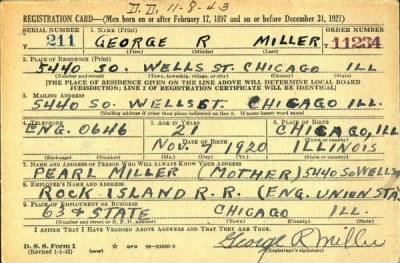 D.D. 11-8-43
REGISTRATION CARD—(Men born on or after February 17, 1897 and on or before December 31, 1921)
SERIAL NUMBER 1. NAME (Print) ORDER NUMBER
211 GEORGE R MILLER 11234
(First) (Middle) (Last)
2. PLACE OF RESIDENCE (Print)
5440 SO. WELLS ST. CHICAGO ILL
(Number and street) (Town, township, village, or city) (County) (State)
[THE PLACE OF RESIDENCE GIVEN ON THE LINE ABOVE WILL DETERMINE LOCAL BOARD
JURISDICTION; LINE 2 OF REGISTRATION CERTIFICATE WILL BE IDENTICAL]
3. MAILING ADDRESS
5440 SO. WELLS ST. CHICAGO ILL.
[Mailing address if other than place indicated on line 2. If same insert word same]
4. TELEPHONE 5. AGE IN YEARS 6. PLACE OF BIRTH
ENG. 0646 21 CHICAGO, ILL
DATE OF BIRTH (Town or county)
NOV. 7 1920 ILLINOIS
(Exchange) (Number) (Mo.) (Day) (Yr.) (State or country)
7. NAME AND ADDRESS OF PERSON WHO WILL ALWAYS KNOW YOUR ADDRESS
PEARL MILLER (MOTHER) 5440 SO WELLS
8. EMPLOYER'S NAME AND ADDRESS
ROCK ISLAND R.R. (ENG. UNION STA)
9. PLACE OF EMPLOYMENT OR BUSINESS
63rd STATE CHICAGO ILL.
(Number and street or R. F. D. number) (Town) (County) (State)
I AFFIRM THAT I HAVE VERIFIED ABOVE ANSWERS AND THAT THEY ARE TRUE.
D. S. S. Form 1
(Revised 1-1-42) (over)
George R. Miller
(Registrant's signature)